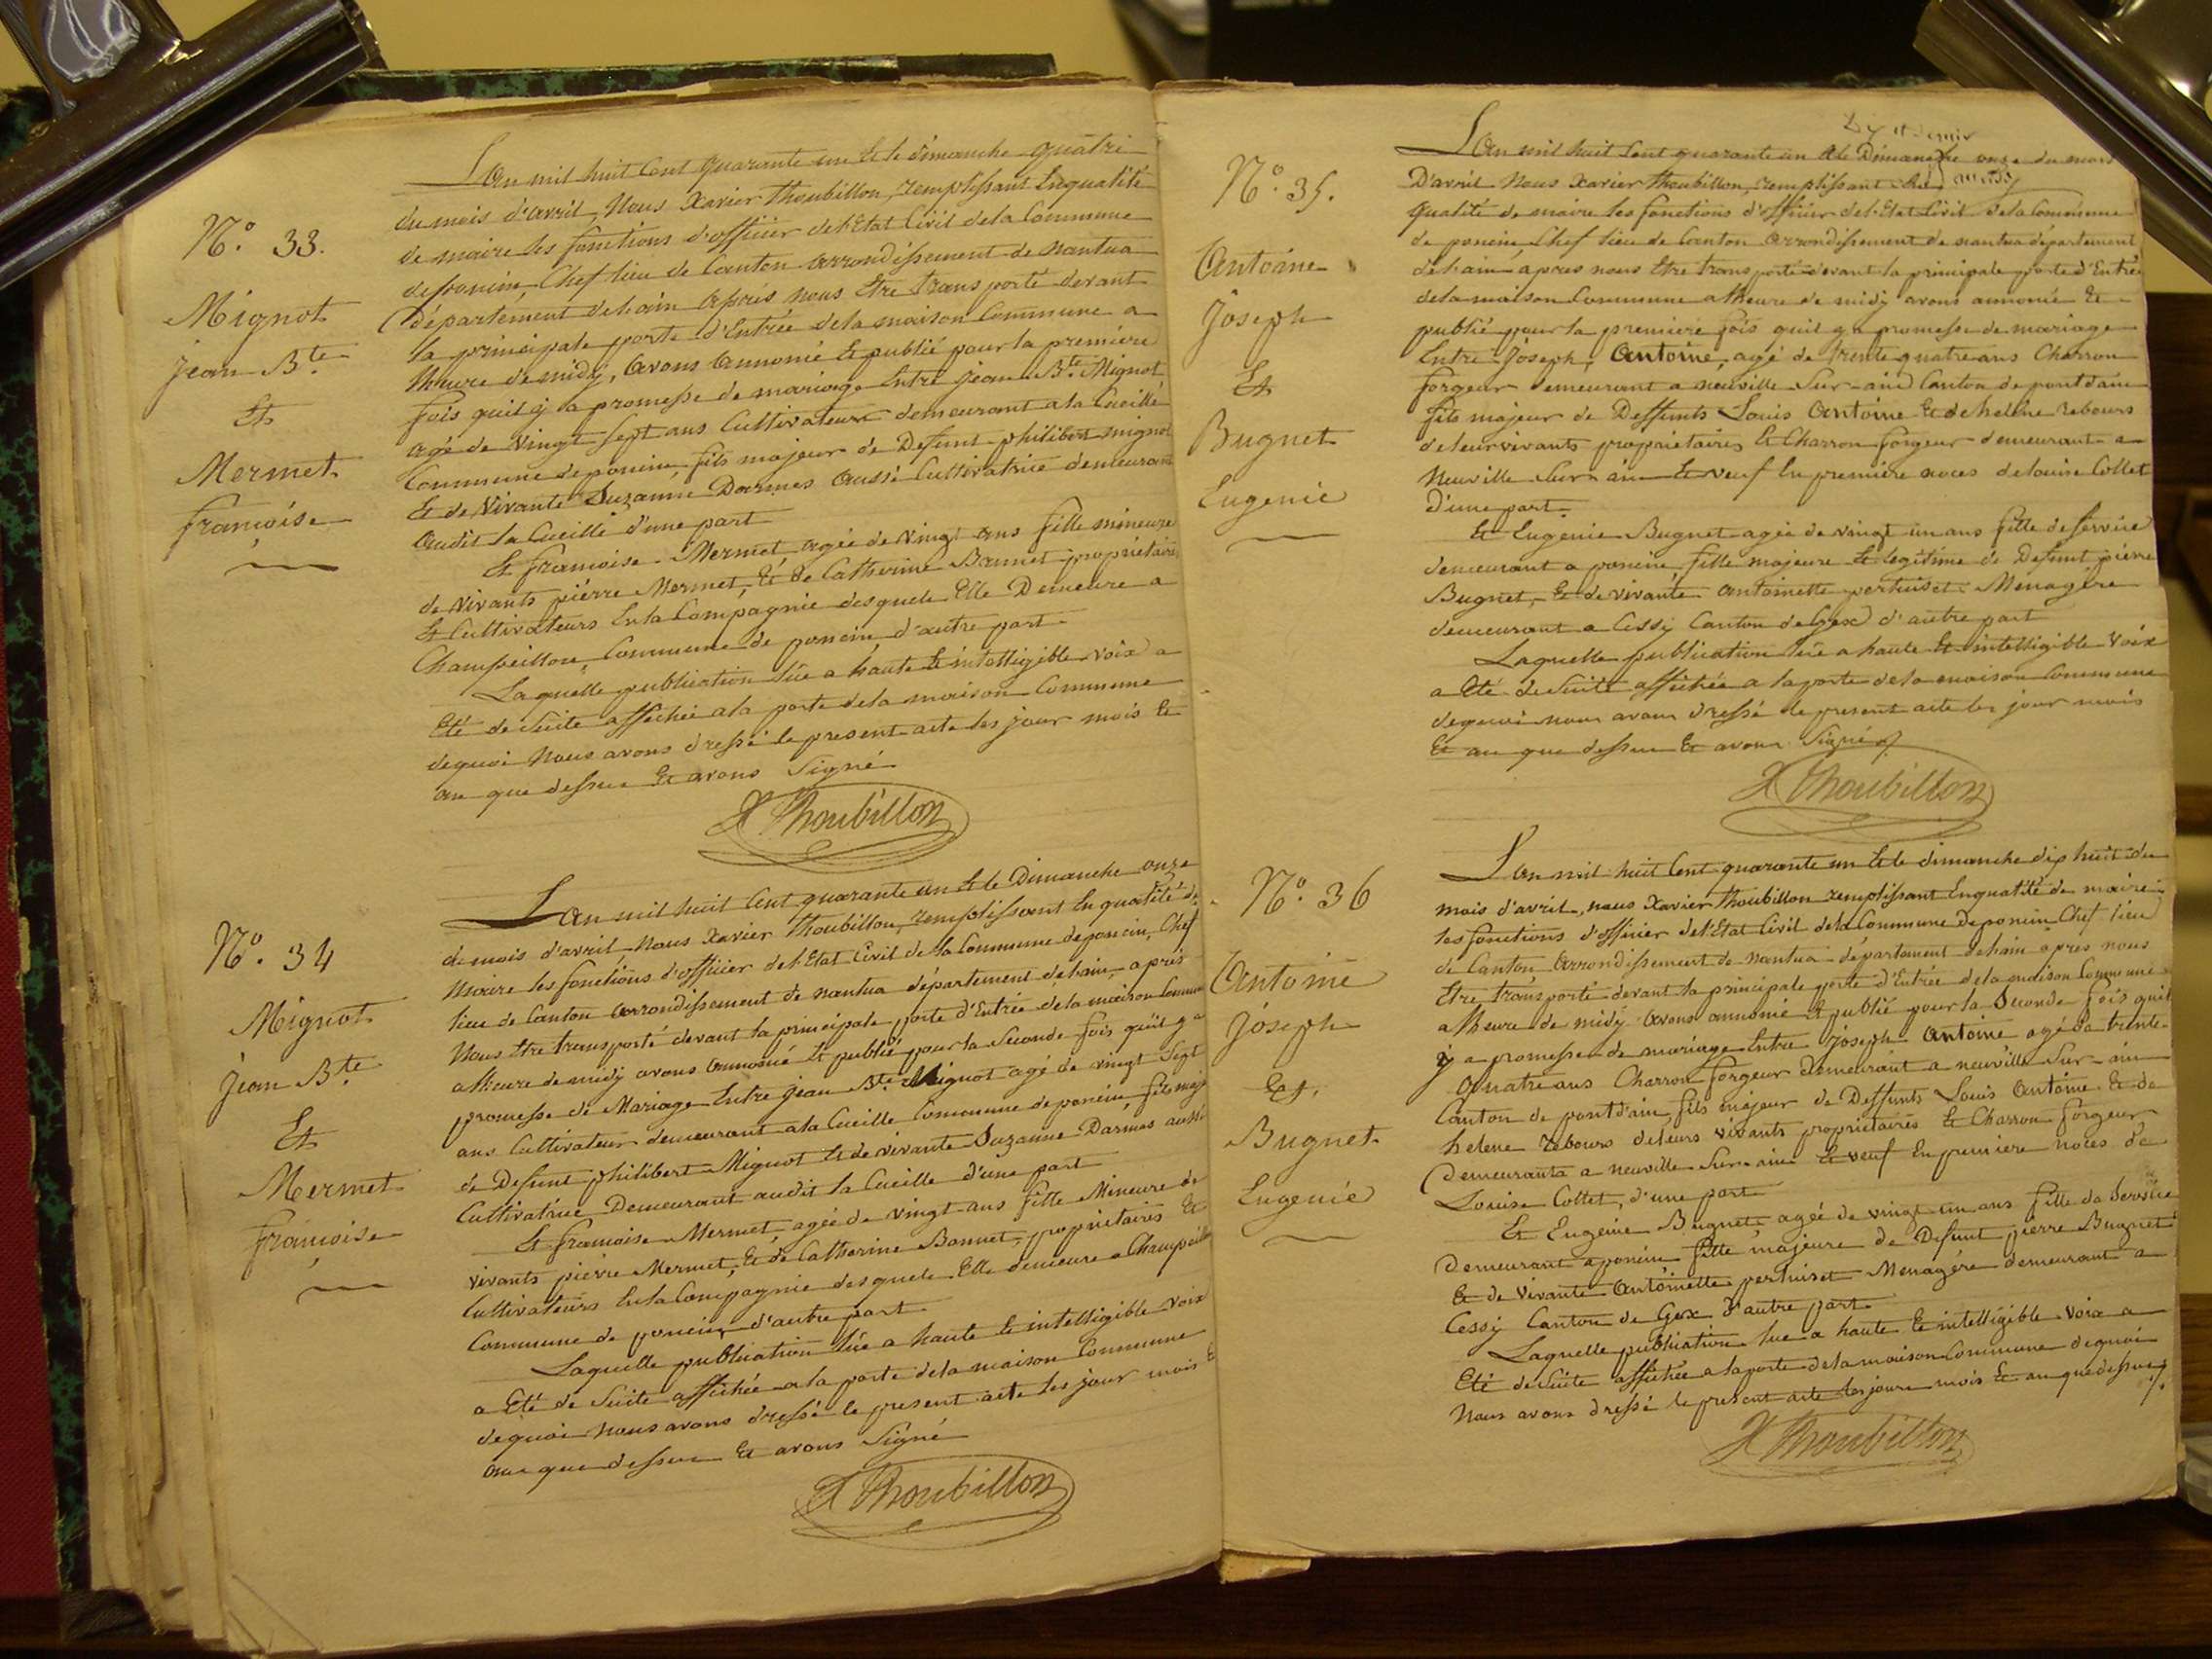 N.o 33.
Mignot
jean B.te
Et
Mermet
françoise
L'an mil huit Cent quarante un Et le dimanche quatre
du mois d'avril, Nous Xavier Thoubillon, remplissant Enqualité
de maire les fonctions d'officier del'Etat Civil dela Commune
deponcin, Chef lieu de Canton arrondissement de nantua
département delain après nous Etre transporté devant
la principale porte d'Entrée dela maison Commune a
lheure de midy, avons annoncé Et publié pour la première
fois quil y a promesse de mariage Entre jean B.te Mignot
agé de vingt sept ans Cultivateur demeurant ala Cueille
Commune deponcin, fils majeur de Defunt philibert mignot
Et de vivante Suzanne Darmes aussi Cultivatrice demeurant
audit la Cueille d'une part
Et françoise Mermet, agée de vingt ans fille mineure
de vivants pierre Mermet, Et de Catherine Bonnet propriétaires
Et Cultivateurs Enla Compagnie desquels Elle Demeure a
Champeillon, Commune de poncin d'autre part
Laquelle publication lüe a haute Et intelligible voix a
Eté de suite affichée ala porte dela maison Commune
dequoi Nous avons dressé le present acte les jour mois Et
an que dessus Et avons Signé
X Thoubillon
N.o 34
Mignot
jean B.te
Et
Mermet
françoise
L'an mil huit Cent quarante un Et le Dimanche onze
du mois d'avril, nous Xavier Thoubillon, remplissant En qualité de
maire les fonctions d'officier del'Etat Civil de la Commune deponcin, Chef
lieu de Canton arrondissement de nantua département delain, après
Nous Etre transporté devant la principale porte d'Entrée dela maison Commune
alheure de midy avons annoncé Et publié pour la Seconde fois quil y a
promesse de Mariage Entre jean B.te Mignot agé de vingt Sept
ans Cultivateur demeurant ala Cueille Commune de poncin, fils maj
de Defunt philibert Mignot Et de vivante Suzanne Darmes aussi
Cultivatrice Demeurant audit la Cueille d'une part
Et françoise Mermet, agée de vingt ans fille Mineure de
vivants pierre Mermet, Et de Catherine Bonnet, propriétaires Et
Cultivateurs Enla Compagnie desquels Elle demeure a Champeillon
Commune de poncin d'autre part
Laquelle publication lüe a haute Et intelligible voix
a Eté de Suite affichée ala porte dela maison Commune
dequoi nous avons dressé le present acte les jour mois Et
an que dessus Et avons Signé
X Thoubillon
N.o 35.
Antoine
Joseph
Et
Bugnet
Eugenie
L'an mil huit Cent quarante un Et le Dimanche onze du mois
D'avril Nous Xavier Thoubillon, remplissant
qualité de maire les fonctions d'officier del'Etat Civil dela Commune
de poncin, Chef lieu de Canton arrondissement de nantua département
delain après nous Etre transporté devant la principale porte d'Entrée
dela maison Commune alheure de midy avons annoncé Et
publié pour la première fois quil y a promesse de mariage
Entre Joseph, Antoine, agé de trente quatre ans Charron
forgeur demeurant a neuville Sur-ain Canton de pontdain
fils majeur de Deffunts Louis Antoine Et de helene Rebours
deleur vivants propriétaires Et Charron forgeur demeurant a
Neuville Sur ain Et veuf En première noces delouise Collet
D'une part.
Et Eugenie Bugnet agée de vingt un ans fille de Service
demeurant a poncin fille majeure Et legitime de Defunt pierre
Bugnet, Et de vivante antoinette pertuiset Menagère
demeurant a Cessy Canton deGex d'autre part
Laquelle publication lüe a haute Et intelligible voix
a Eté de Suite affichée a la porte dela maison Commune
dequoi nous avons dressé le present acte les jour mois
Et an que dessus Et avons Signé
X Thoubillon
N.o 36
Antoine
Joseph
Et.
Bugnet
Eugenie
L'an mil huit Cent quarante un Et le dimanche dix huit du
mois d'avril, nous Xavier Thoubillon remplissant Enqualité de maire
les fonctions d'officier del'Etat Civil dela Commune Deponcin Chef lieu
de Canton arrondissement de nantua département delain après nous
Etre transporté devant la principale porte d'Entrée dela maison Commune
alheure de midy avons annoncé Et publié pour la Seconde fois quil
y a promesse de mariage Entre Joseph Antoine agé de trente
quatre ans Charron forgeur demeurant a neuville Sur-ain
Canton de pontdain fils majeur de Deffunts Louis Antoine Et de
helene Rebours deleurs vivants propriétaires Et Charron forgeur
Demeurants a neuville Sur-ain Et veuf En premiere noces de
Louise Collet, d'une part
Et Eugenie Bugnet agée de vingt un ans fille de Service
Demeurant aponcin fille majeure de Defunt pierre Bugnet
Et de vivante Antoinette pertuiset Menagère demeurant a
Cessy Canton de Gex d'autre part
Laquelle publication lue a haute Et intelligible voix a
Eté de Suite affichée a laporte dela maison Commune dequoi
Nous avons dressé le present acte les jour mois Et an que dessus
X Thoubillon